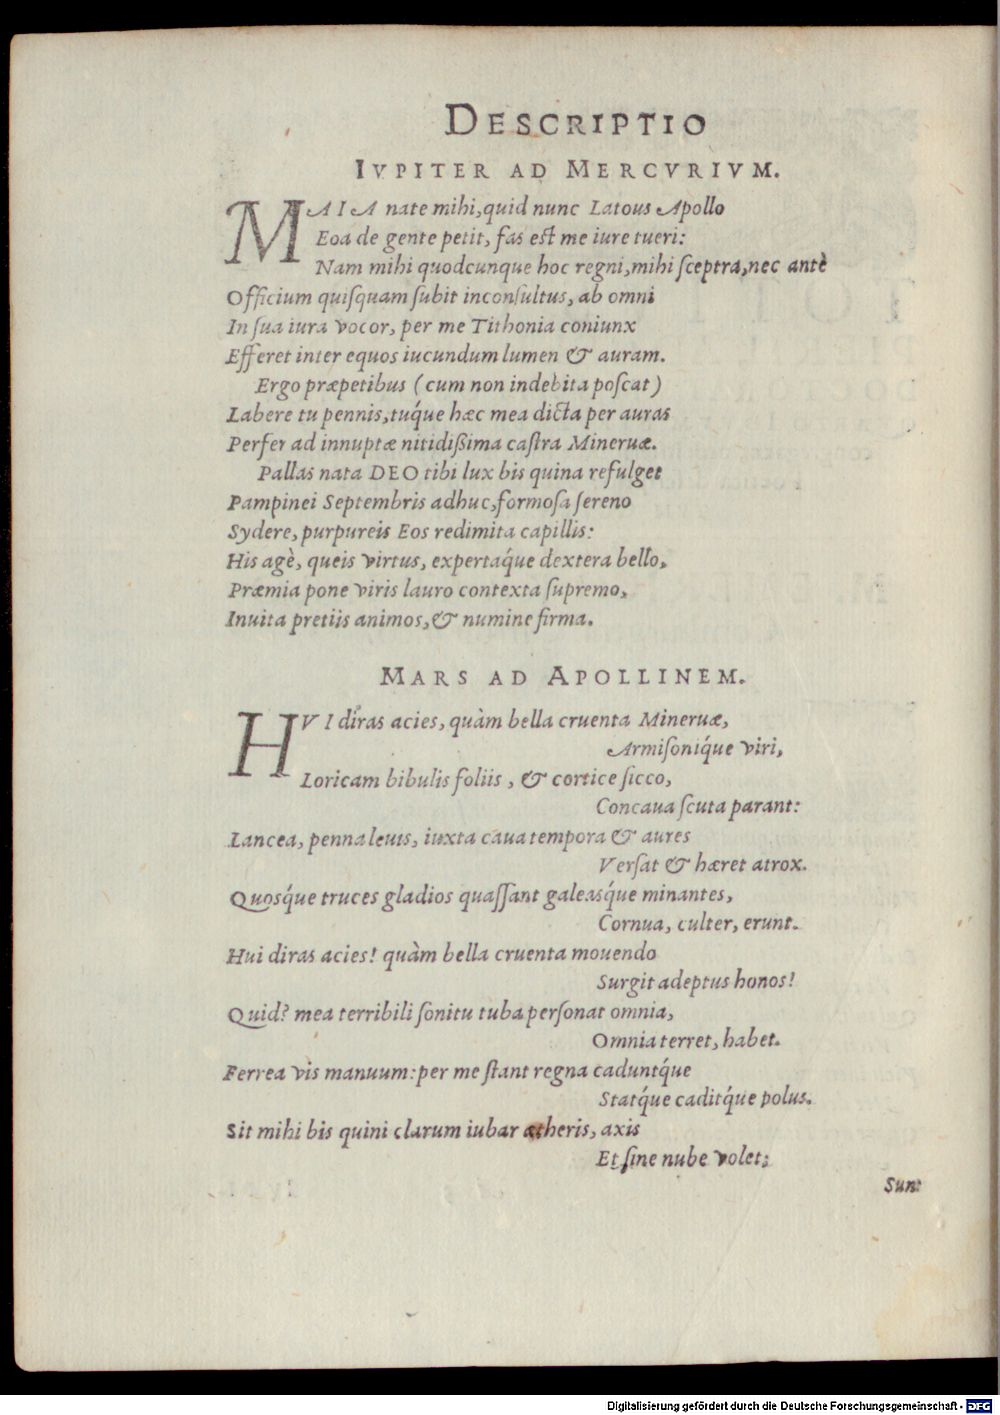 DESCRIPTIO
IVPITER AD MERCVRIVM.
MAIA nate mihi, quid nunc Latous Apollo
Eoa de gente petit, fas est me iure tueri:
Nam mihi quodcunque hoc regni, mihi sceptra, nec antè
Officium quisquam subit inconsultus, ab omni
In sua iura vocor, per me Tithonia coniunx
Efferet inter equos iucundum lumen & auram.
Ergo præpetibus (cum non indebita poscat)
Labere tu pennis, tuq́ue hæc mea dicta per auras
Perfer ad innuptæ nitidißima castra Mineruæ.
Pallas nata DEO tibi lux bis quina refulget
Pampinei Septembris adhuc, formosa sereno
Sydere, purpureis Eos redimita capillis:
His agè, queis virtus, expertaq́ue dextera bello,
Præmia pone viris lauro contexta supremo,
Inuita pretiis animos, & numine firma.
MARS AD APOLLINEM.
HVI diras acies, quàm bella cruenta Mineruæ,
Armisoniq́ue viri,
Loricam bibulis foliis, & cortice sicco,
Concaua scuta parant:
Lancea, penna leuis, iuxta caua tempora & aures
Versat & hæret atrox.
Quosq́ue truces gladios quassant galeasq́ue minantes,
Cornua, culter, erunt.
Hui diras acies! quàm bella cruenta mouendo
Surgit adeptus honos!
Quid? mea terribili sonitu tuba personat omnia,
Omnia terret, habet.
Ferrea vis manuum: per me stant regna caduntq́ue
Statq́ue caditq́ue polus.
Sit mihi bis quini clarum iubar ætheris, axis
Et sine nube volet;
Sunt
Digitalisierung gefördert durch die Deutsche Forschungsgemeinschaft - DFG